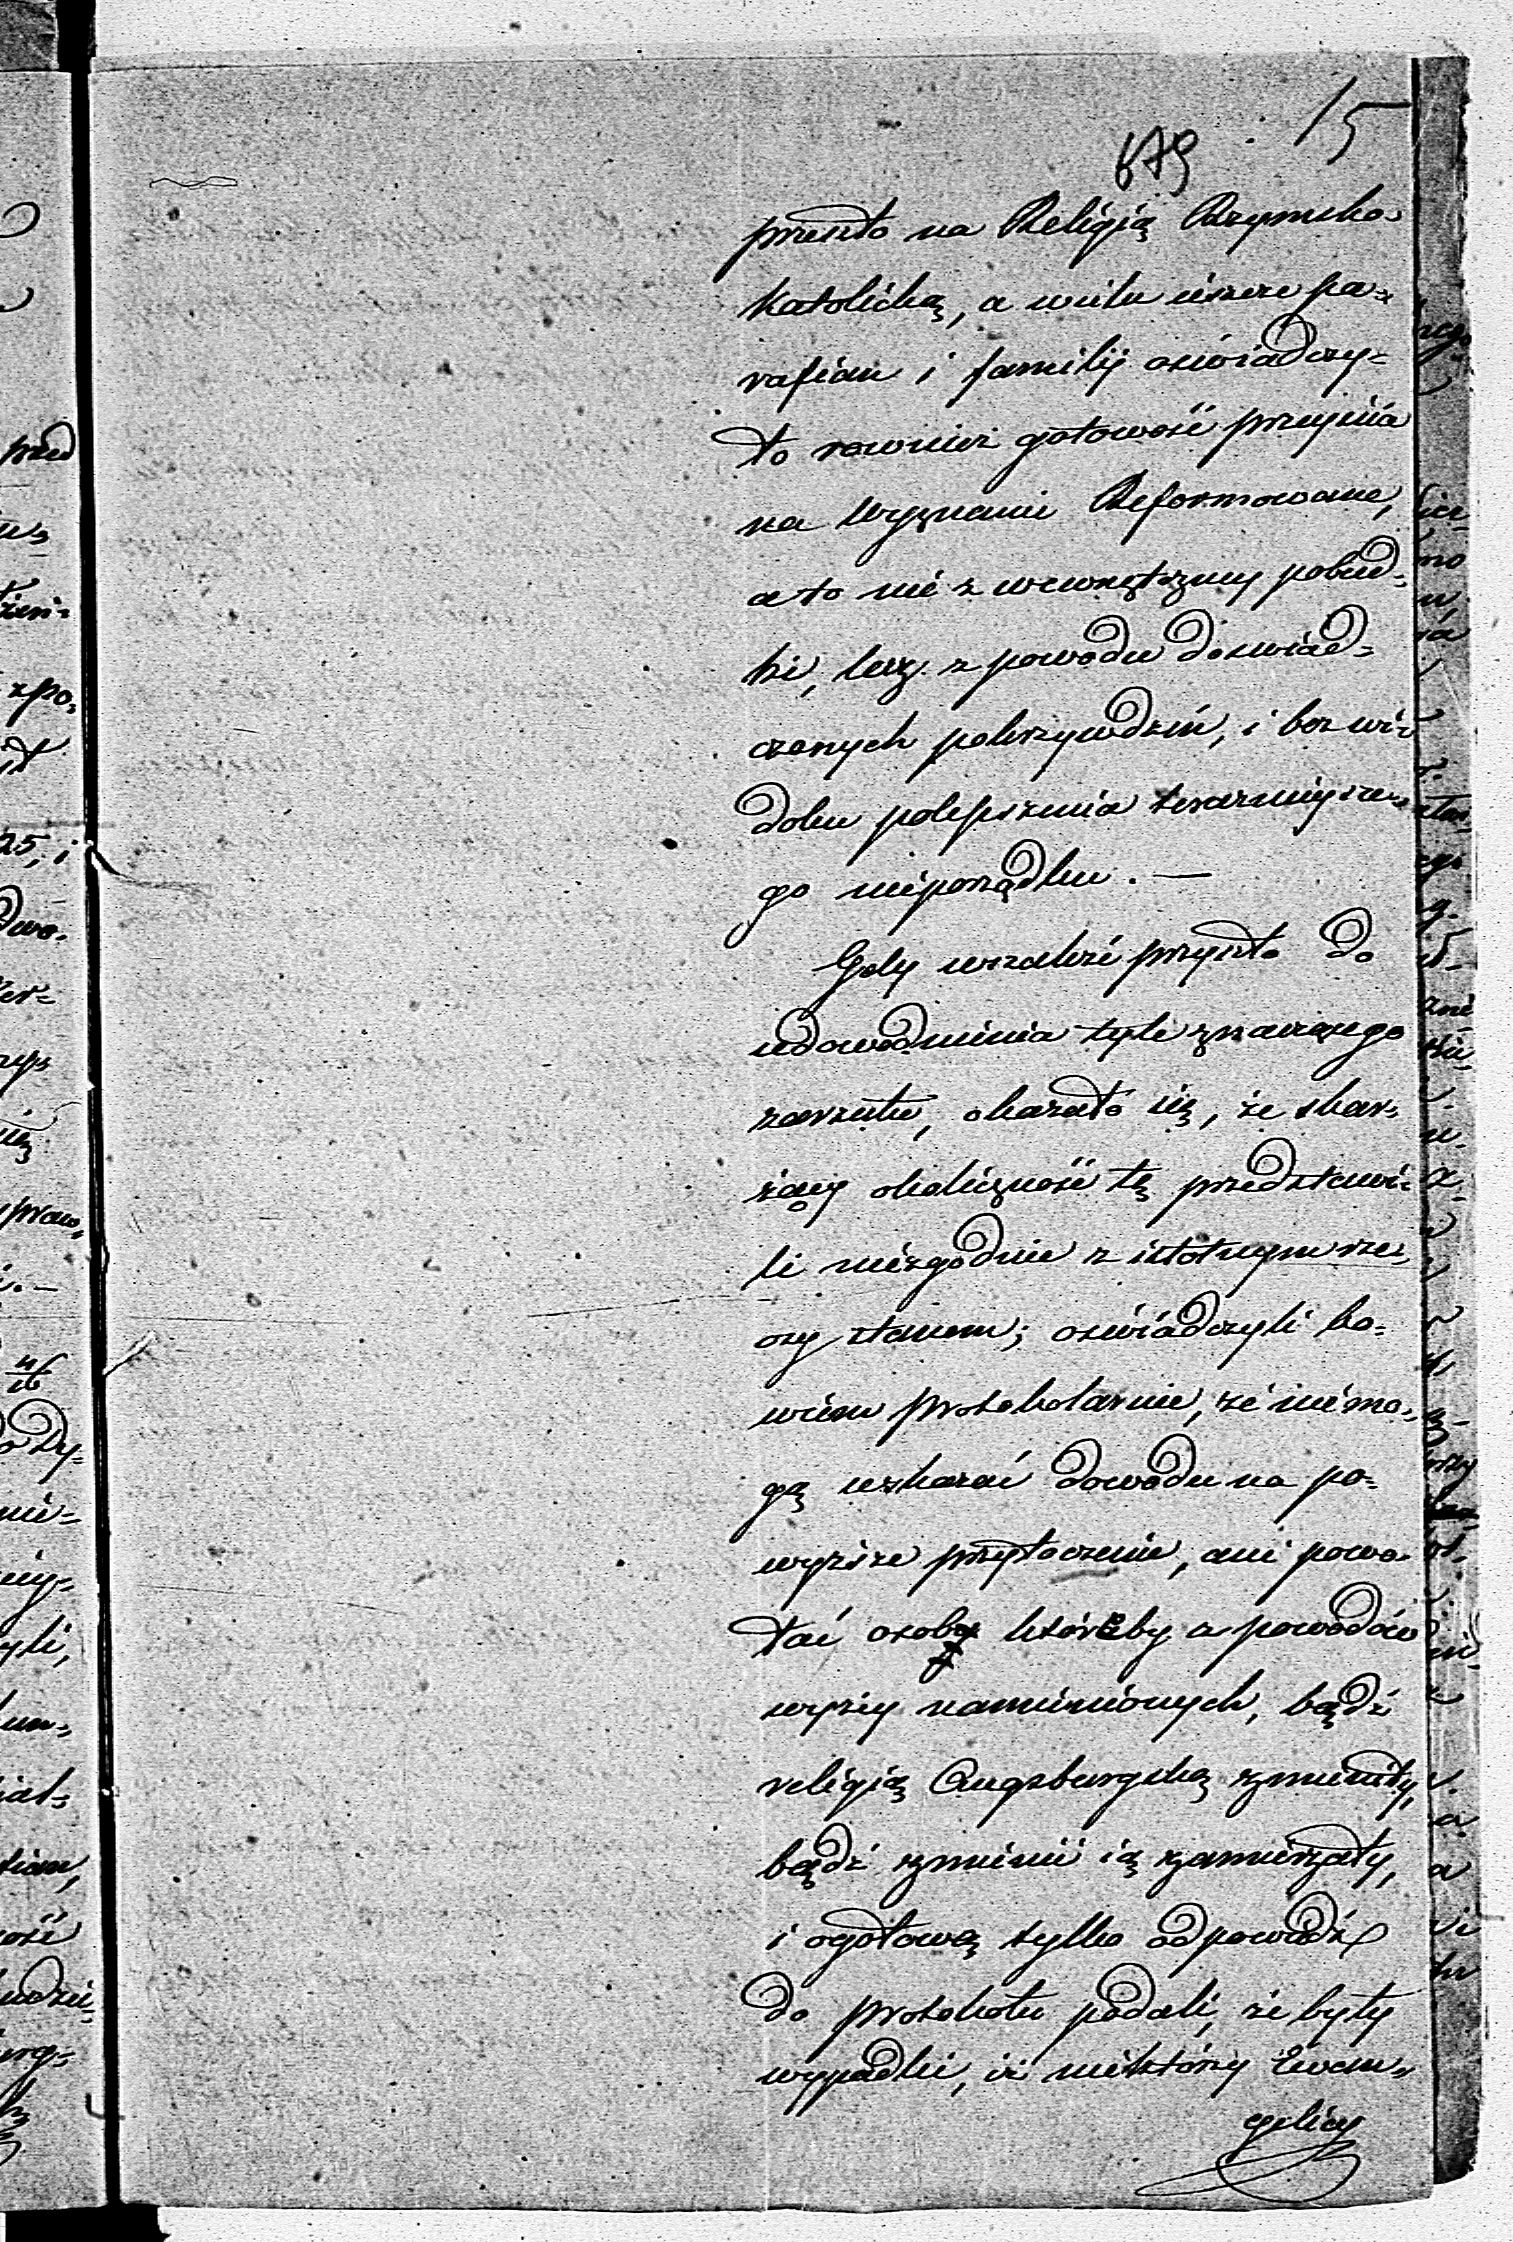 15
679
przeszło na Religią Rzymsko
Katolicką, a wielu ieszcze pa-
rafian i familij oswiadczy-
ło rownież gotowość przeyścia
na Wyznanie Reformowane,
a to nie z wewnętrzney pobud-
ki, lecz z powodu doświad-
czonych pokrzywdzeń, i bez wi-
doku polepszenia terazniejsze-
go nieporządku. —
Gdy wszakże przyszło do
udowodnienia tyle znaczącego
zarzutu, okazało się, że skar-
żący okoliczność tę przedstawi-
li niezgodnie z istotnym rze-
czy stanem; oświadczyli bo-
wiem protokolarnie, że nie mo-
gą wskazać dowodu na po-
wyższe przytoczenie, ani powo-
łać osoby któreby z powodów
wyżey namienionych, bądź
religią Augsburgską zmieniły,
bądź zmienić ią zamierzały,
i ogołową tylko odpowiedź
do protokołu podali, że były
wypadki, iż niektórzy Ewan-
gelicy